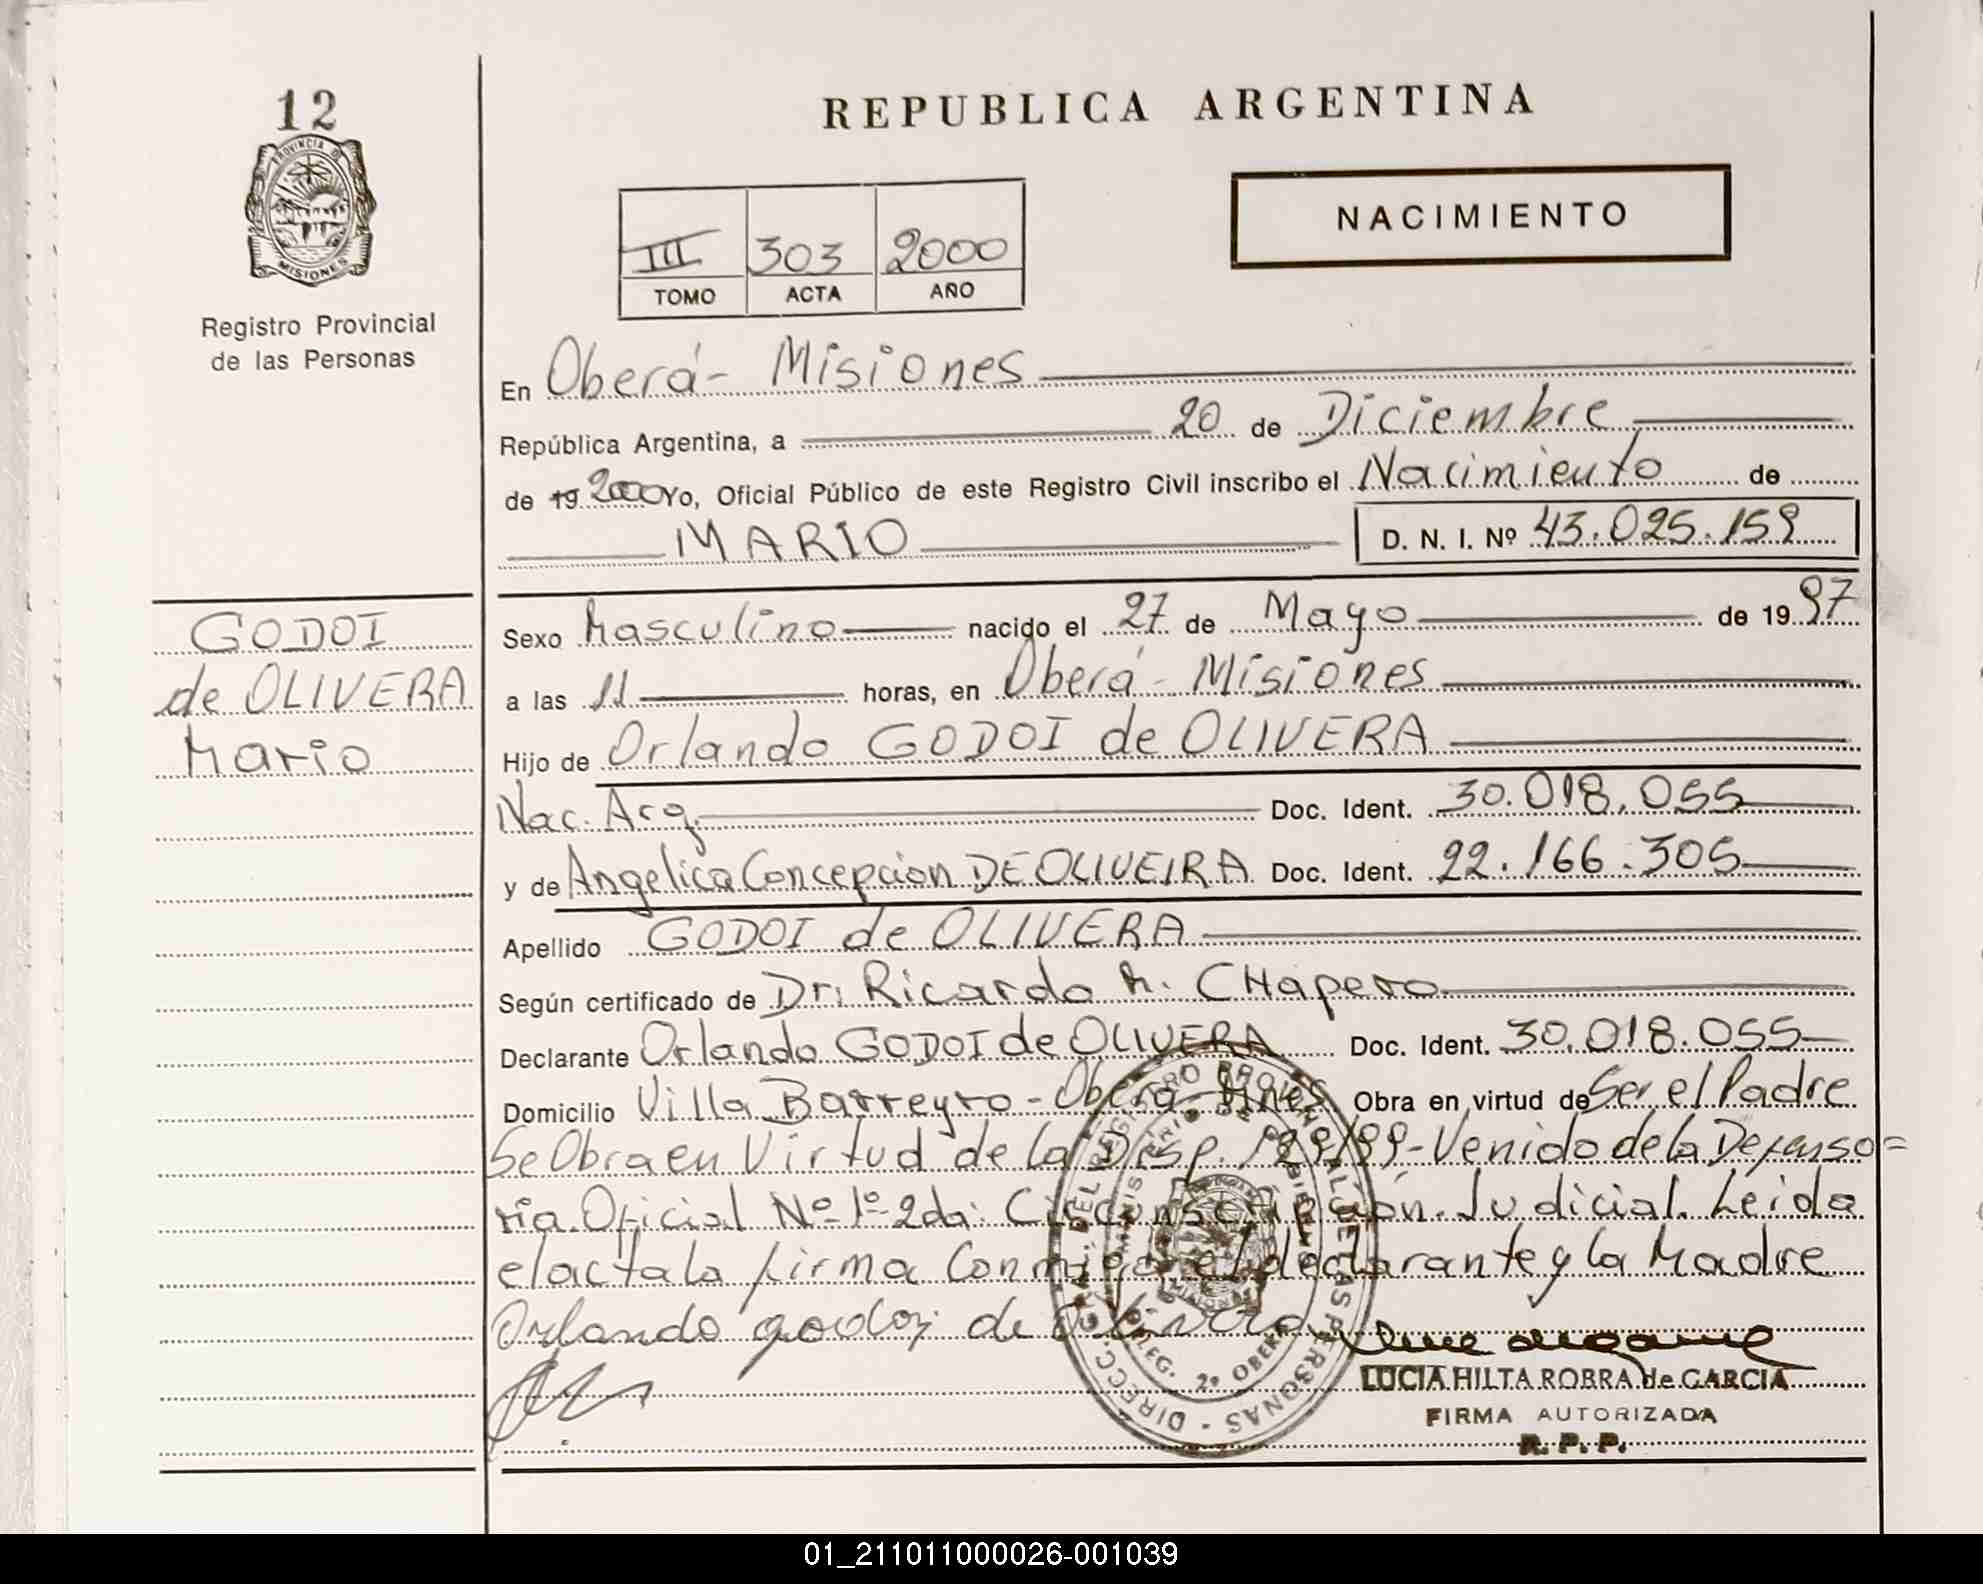 12
PROVINCIA DE
MISIONES
Registro Provincial
de las Personas
REPUBLICA ARGENTINA
NACIMIENTO
III 303 2000
TOMO ACTA AÑO
En Oberá - Misiones
República Argentina, a 20 de Diciembre
de 19 2000 Yo, Oficial Público de este Registro Civil inscribo el Nacimiento de
MARIO D. N. I. Nº 43.025.159
GODOI
de OLIVERA
Mario
Sexo Masculino nacido el 27 de Mayo de 19 97
a las 11 horas, en Oberá - Misiones
Hijo de Orlando GODOI de OLIVERA
Nac. Arg. Doc. Ident. 30.018.055
y de Angelica Concepcion DE OLIVEIRA Doc. Ident. 22.166.305
Apellido GODOI de OLIVERA
Según certificado de Dr. Ricardo M. CHapero
Declarante Orlando GODOI de OLIVERA Doc. Ident. 30.018.055
Domicilio Villa Barreyro - Oberá - Mnes Obra en virtud de Ser el Padre
Se Obra en Virtud de la Disp. 129/99 - Venido de la Defenso=
ria Oficial Nº 1º - 2da: Circunscripción Judicial. Leida
el acta la firma Conmigo el declarante y la Madre
Orlando godoi de Olivera
LUCIA HILTA ROBRA de GARCIA
FIRMA AUTORIZADA
R. P. P.
DIRECC. GRAL. DEL REGISTRO PROVINCIAL DE LAS PERSONAS
DELEG. 2º OBERA
01_211011000026-001039